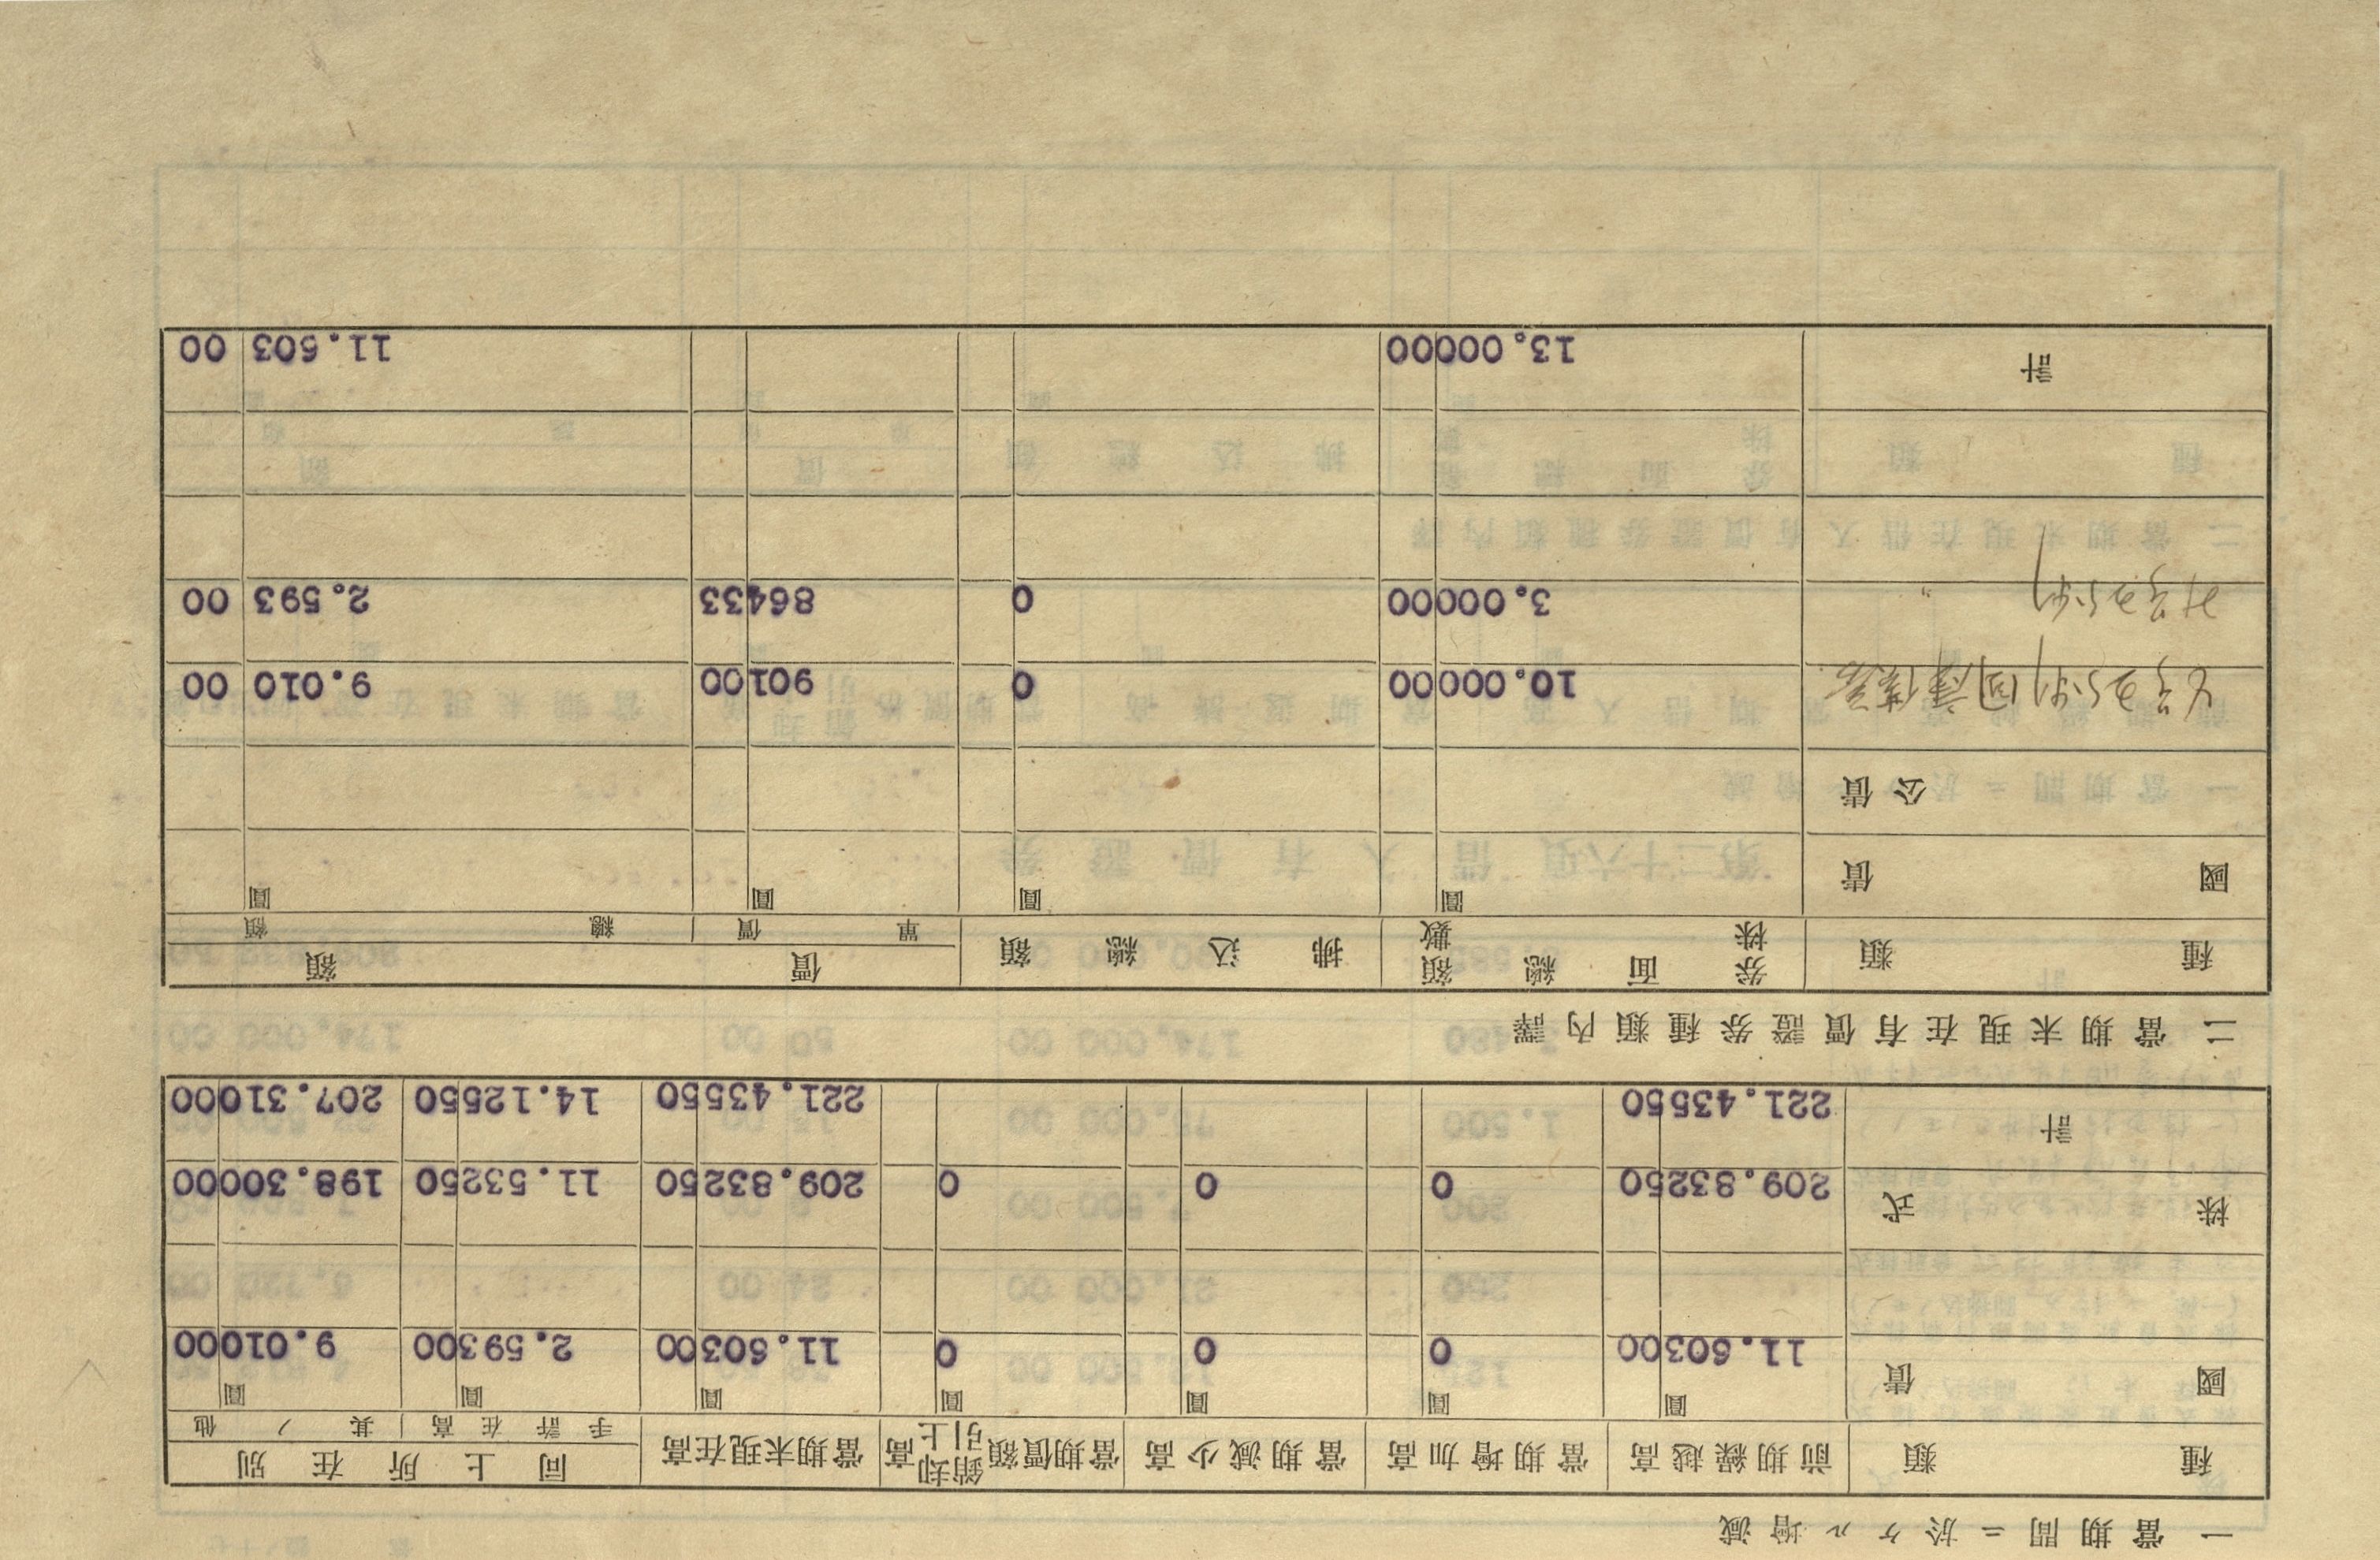 一 當期間ニ於ケル增減
種類 前期繰越高 當期增加高 當期減少高 當期價額銷却引上高 當期末現在高 同上所在別
手許在高 其ノ他
圓 圓 圓 圓 圓 圓 圓
國債 11.60300 0 0 0 11.60300 2.59300 9.01000
株式 209.83250 0 0 0 209.83250 11.53250 198.30000
計 221.43550 221.43550 14.12550 207.31000
二 當期末現在有價證券種類內譯
種類 券面總額 株數 拂込總額 價額
單價 總額
圓 圓 圓 圓
國債
公債
号五分利国庫債券 10.00000 0 90100 9.010 00
号五分利 〃 3.00000 0 86433 2.593 00
計 13.00000 11.603 00